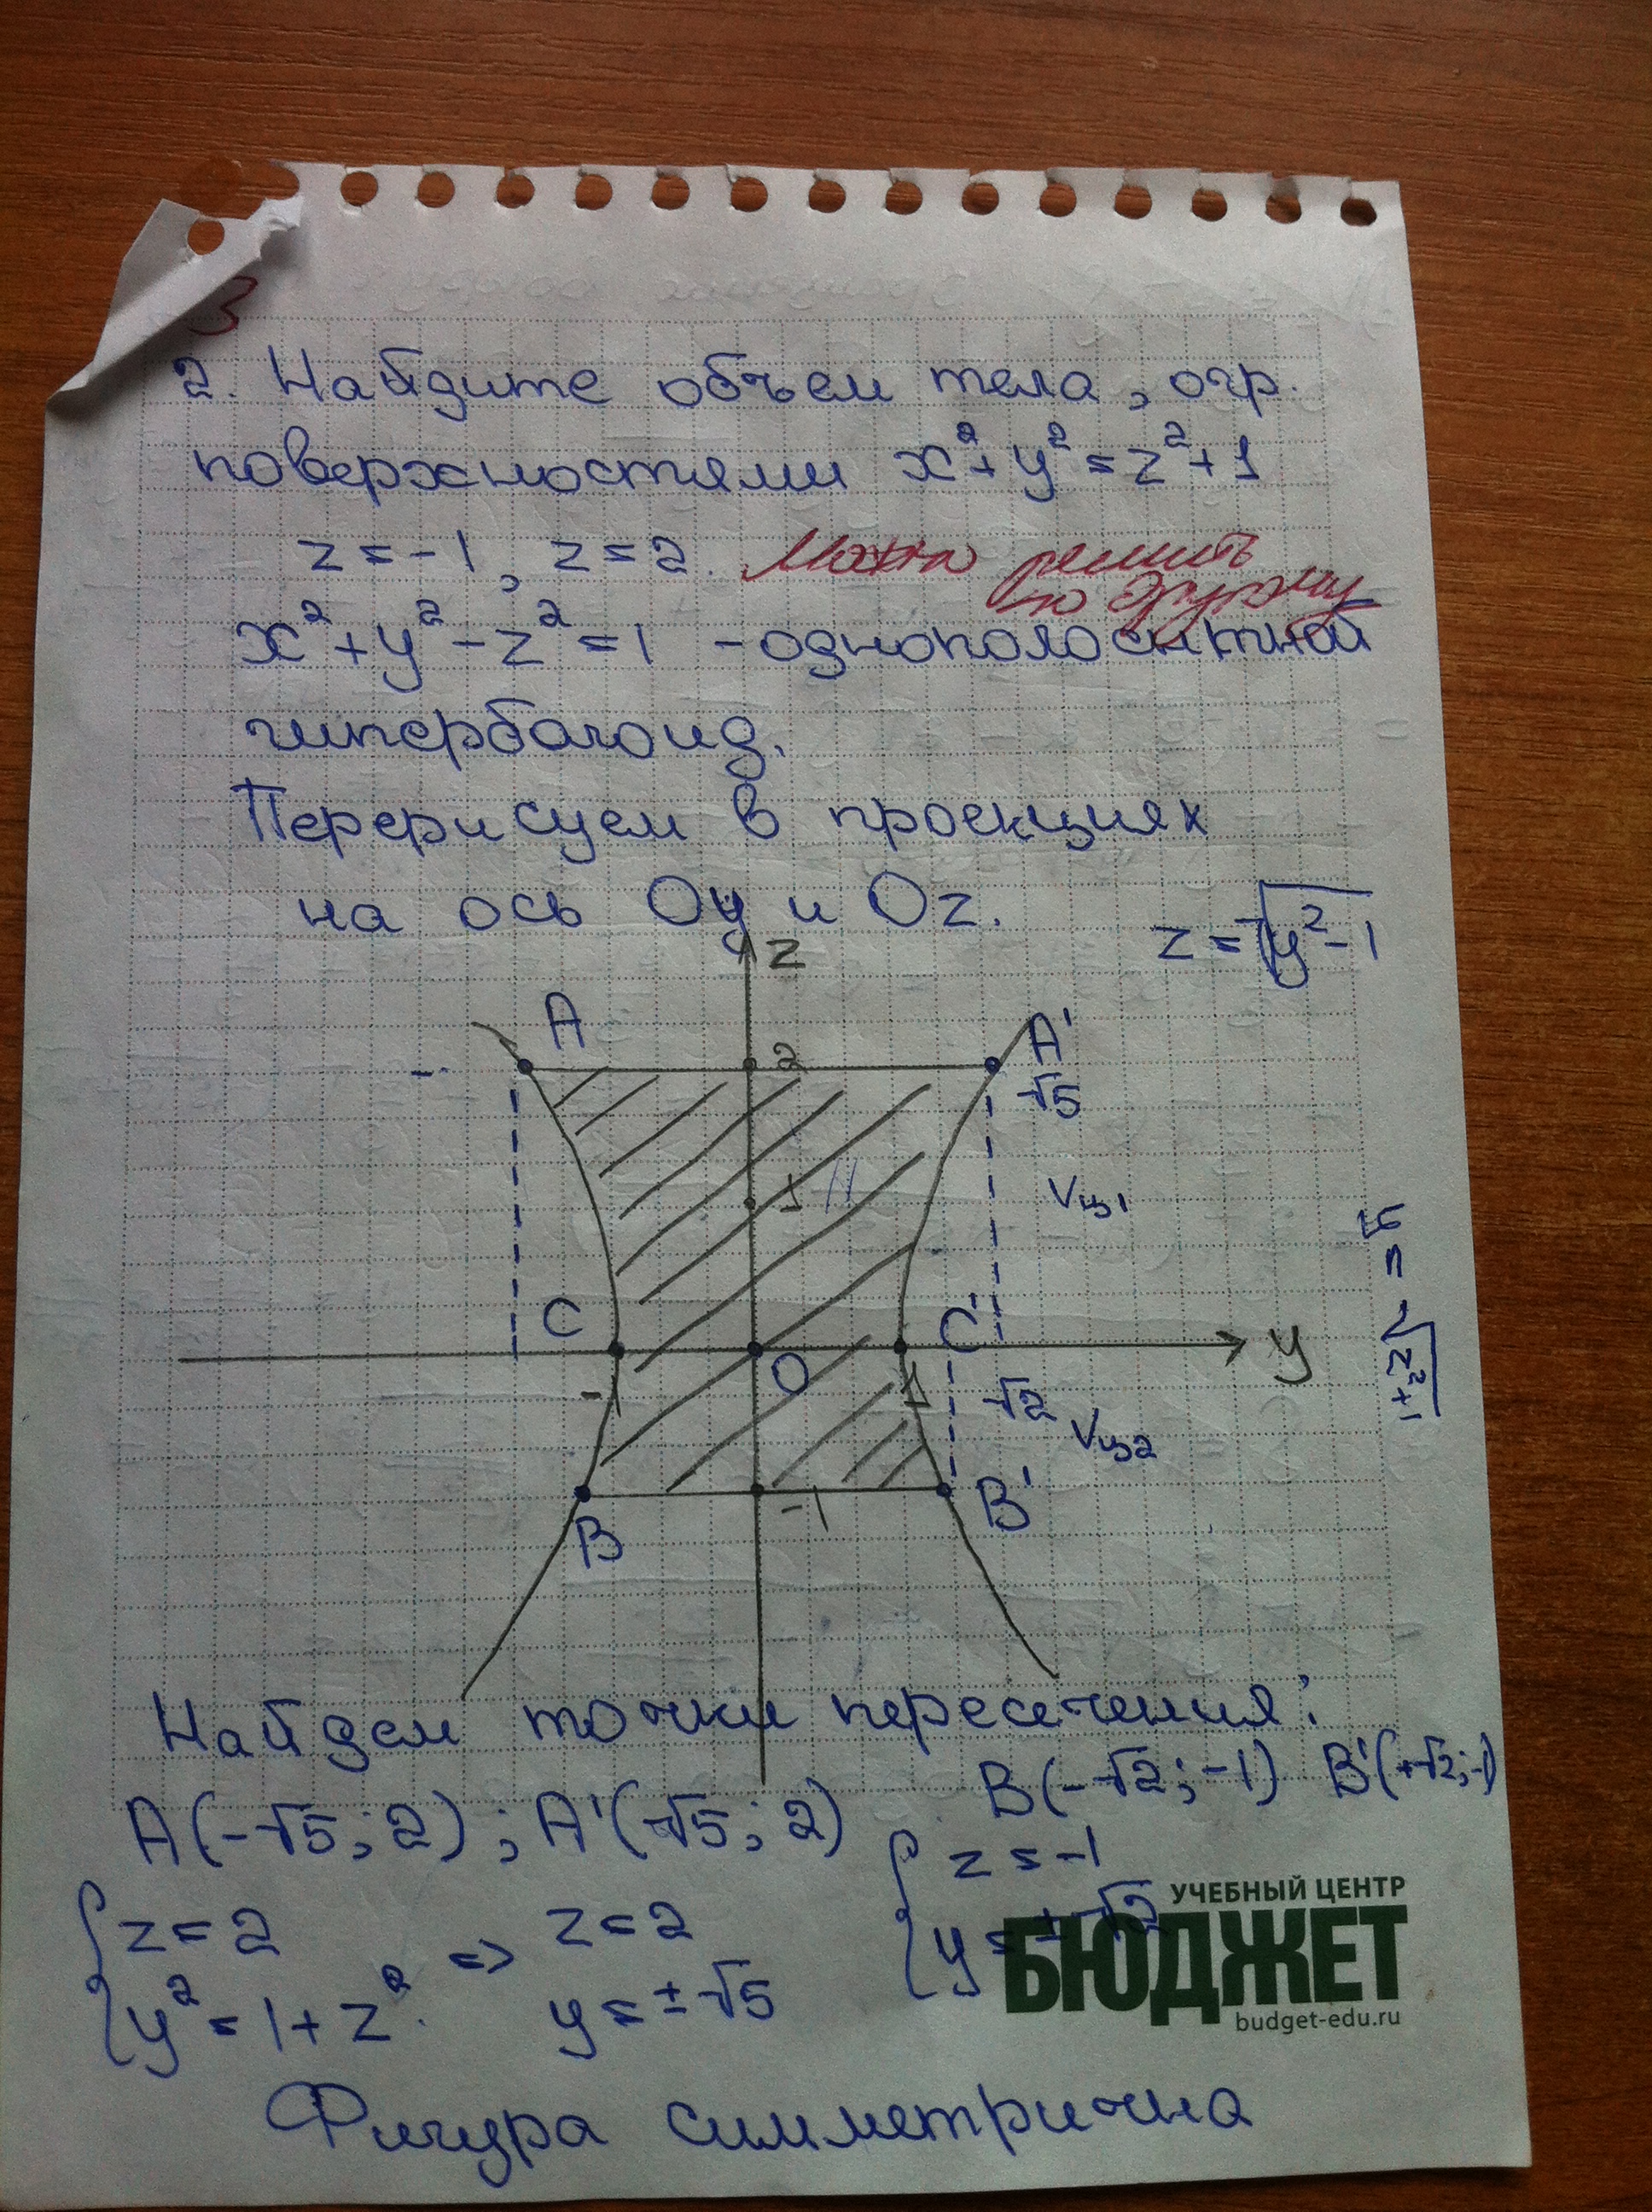 3
2. Найдите объем тела, огр.
поверхностями x²+y²=z²+1
z=-1, z=2. Можно решить
по другому
x²+y²-z²=1 - однополостный
гиперболоид.
Перерисуем в проекциях
на ось Oy и Oz.
z=√y²-1
z
A
A'
2
√5
1
Vц1
y=√z²+1
C
C'
y
O
-1
1
√2
Vц2
B
-1
B'
Найдем точки пересечения:
A(-√5;2); A'(√5;2)
B(-√2;-1) B'(+√2;-1)
{z=2
y²=1+z². => z=2
y=±√5
{z=-1
y=±√2
УЧЕБНЫЙ ЦЕНТР
БЮДЖЕТ
budget-edu.ru
Фигура симметрична